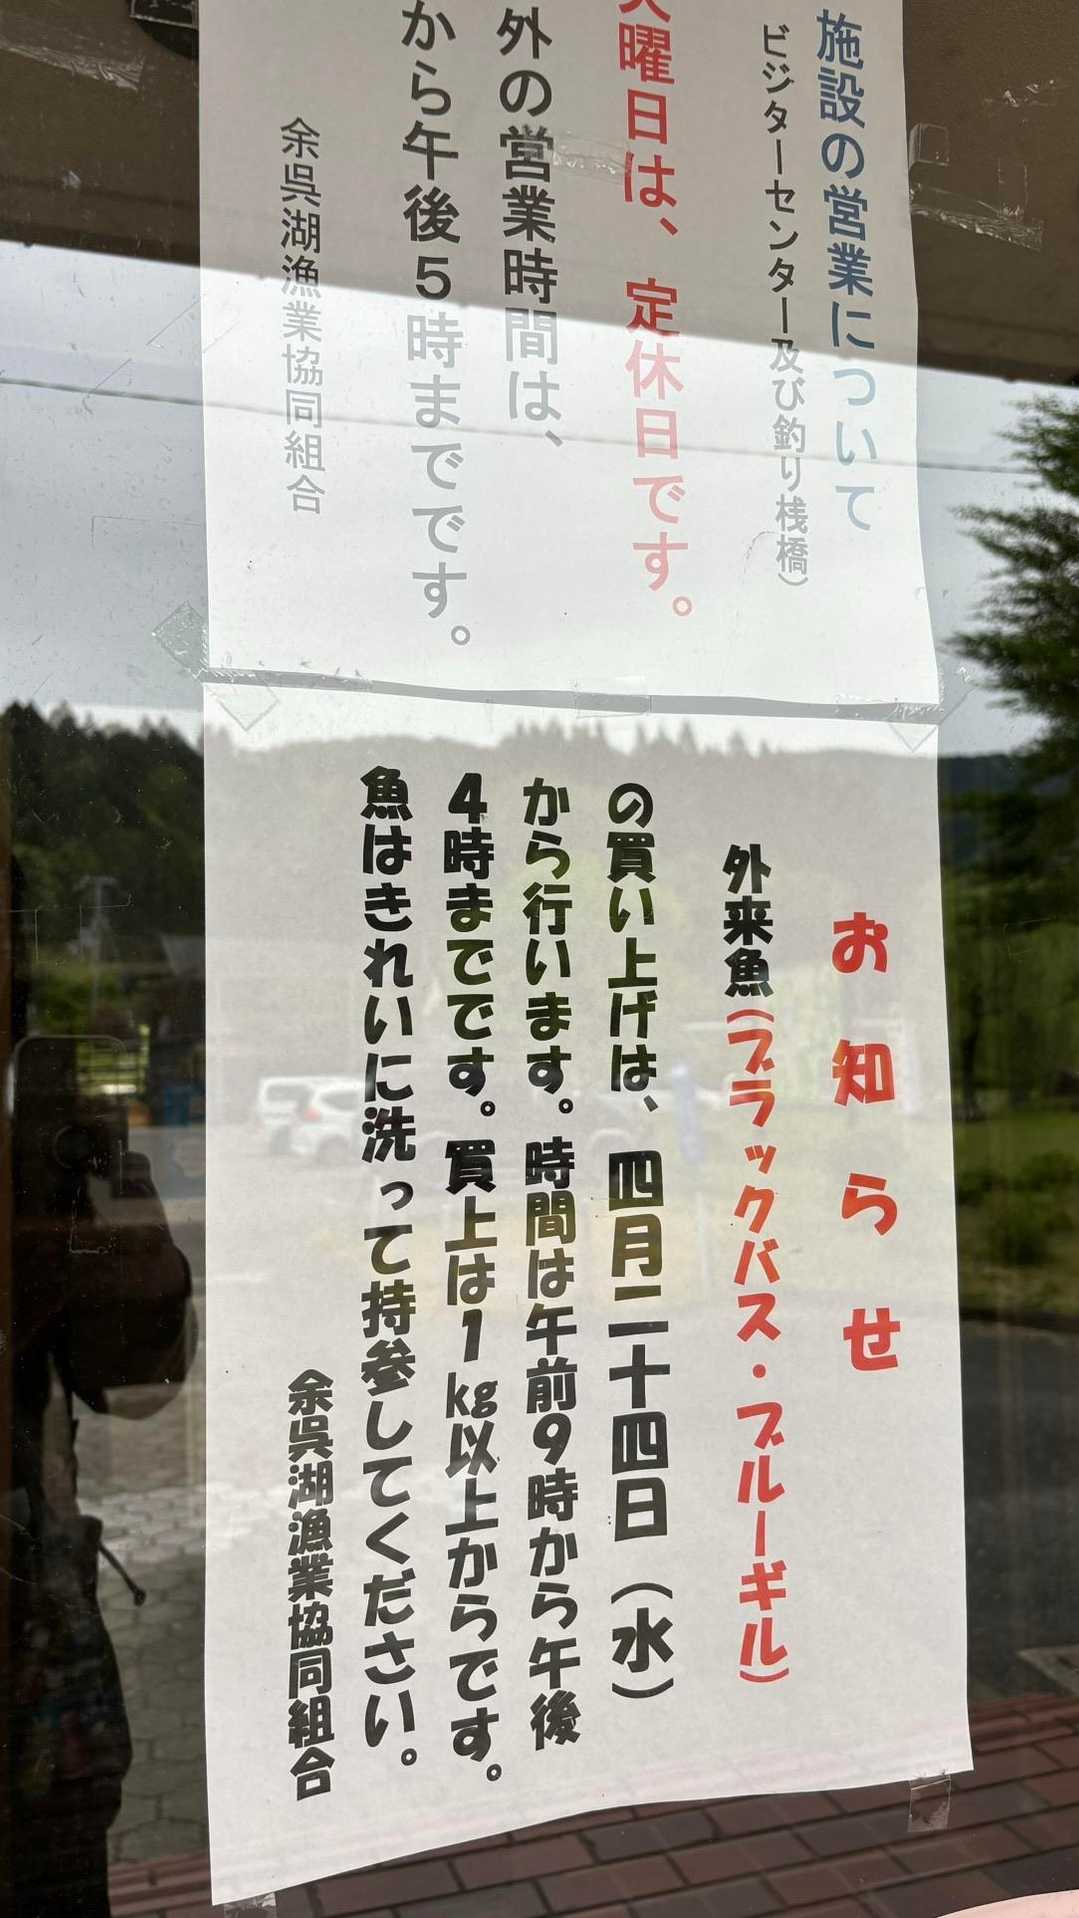 施設の営業について
ビジターセンター及び釣り桟橋)
火曜日は、定休日です。
外の営業時間は、
から午後5時までです。
余呉湖漁業協同組合
お知らせ
外来魚(ブラックバス・ブルーギル)
の買い上げは、四月二十四日(水)
から行います。時間は午前9時から午後
4時までです。買上は1kg以上からです。
魚はきれいに洗って持参してください。
余呉湖漁業協同組合